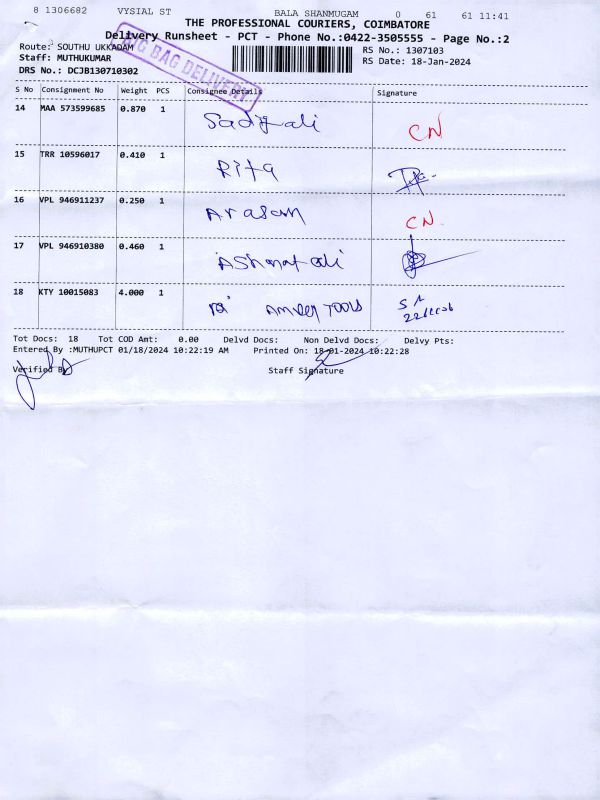 8 1306682 VYSIAL ST BALA SHANMUGAM 0 61 61 11:41
THE PROFESSIONAL COURIERS, COIMBATORE
Delivery Runsheet - PCT - Phone No.:0422-3505555 - Page No.:2
Route: SOUTHU UKKADAM
RS No.: 1307103
Staff: MUTHUKUMAR
RS Date: 18-Jan-2024
DRS No.: DCJB130710302
BIG BAG DELIVERY
S No Consignment No Weight PCS Consignee Details Signature
14 MAA 573599685 0.870 1 Sadiq ali CN
15 TRR 10596017 0.410 1 Rita
16 VPL 946911237 0.250 1 Arasan CN
17 VPL 946910380 0.460 1 AShanat ali
18 KTY 10015083 4.000 1 Amber Tools
Tot Docs: 18 Tot COD Amt: 0.00 Delvd Docs: Non Delvd Docs: Delvy Pts:
Entered By :MUTHUPCT 01/18/2024 10:22:19 AM Printed On: 18-01-2024 10:22:28
Verified By Staff Signature